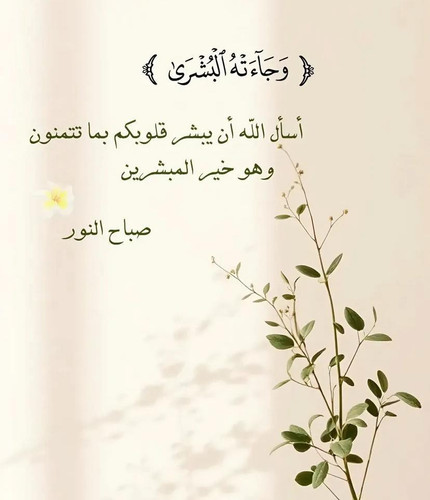 ﴿ وَجَآءَتْهُ ٱلْبُشْرَىٰ ﴾
أسأل الله أن يبشر قلوبكم بما تتمنون
وهو خير المبشرين
صباح النور